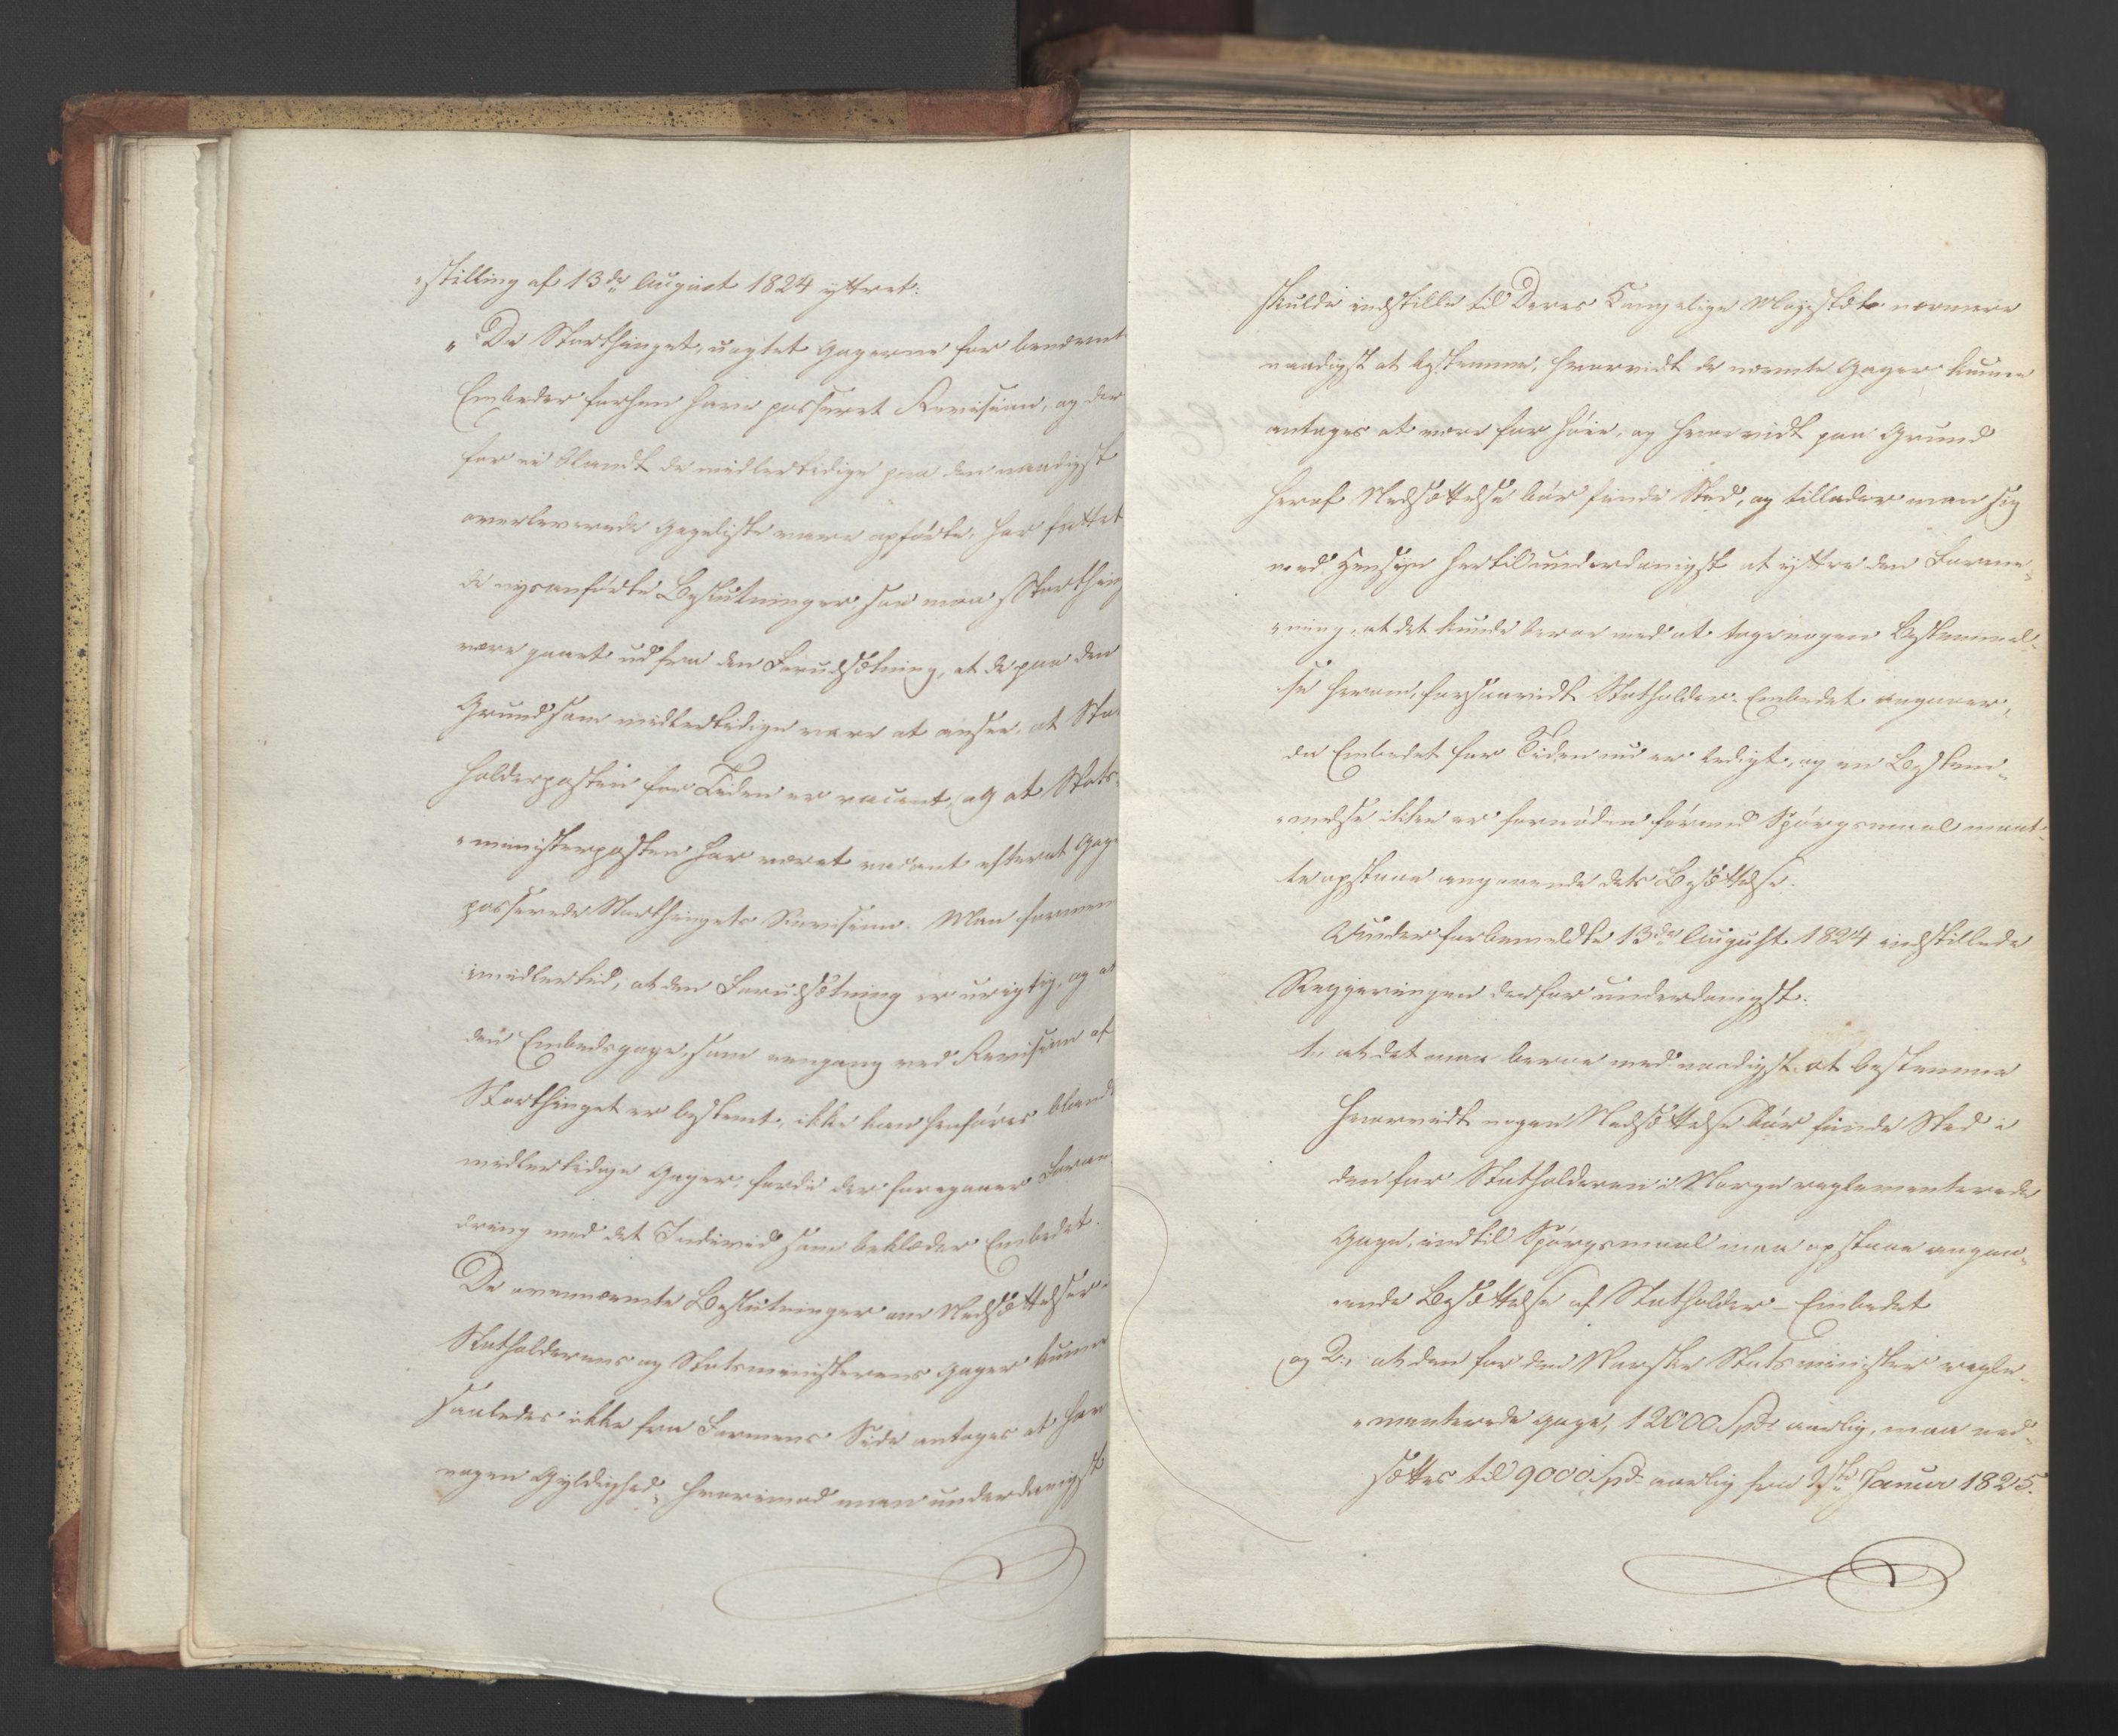 "stilling af 13de August 1824 yttret:
" Da Storthinget, uagtet Gagerne for benævnte
Embeder forhen have passeret Revision, og der
for ei blandt de midlertidige paa den naadigst
overleverede Gageliste vare opførte, har fattet
de nysanførte Beslutninger, saa maa Storthing
være gaaet ud fra den Forudsætning, at de paa den
Grund som midlertidige vare at ansee, at Stat
holderposten for Tiden er vacant, og at Stats-
"ministerposten har været vacant efterat Gage
passerede Storthingets Revision. Man formeen
imidlertid, at den Forudsætning er urigtig, og at
den Embedsgage, som eengang ved Revision af
Storthinget er bestemt, ikke kan henføres blandt
midlertidige Gager, fordi der foregaaer Foran-
dring med det Individ som beklæder Embedet.
De ovennævnte Beslutninger om Nedsættelser i
Statholderens og Statsministerens Gager kunne
saaledes ikke fra Formens Side antages at have
nogen Gyldighed, hvorimod man underdanigst
skulde indstille til Deres Kongelige Majestæt nærmere
naadigst at bestemme, hvorvidt de nævnte Gager kunne
antages at være for høie, og hvorvidt paa Grund
heraf Nedsættelse bør finde Sted, og tillader man sig
med Hensyn hertil underdanigst at yttre den Forme-
"ning, at det kunde beroe med at tage nogen Bestemmel-
se herom, forsaavidt Statholder-Embedet angaaer,
da Embedet for Tiden nu er ledigt, og en Bestem-
"melse ikke er fornøden førend Spørgsmaal maat-
te opstaae angaaende dets Besættelse.
Under forbemeldte 13de August 1824 indstillede
Regjeringen derfor underdanigst:
1, at det maa beroe med naadigst at bestemme
hvorvidt nogen Nedsættelse bør finde Sted i
den for Statholderen i Norge reglementerede
Gage, indtil Spørgsmaal maa opstaae angaa-
ende Besættelse af Statholder-Embedet
og 2, at den for den Norske Statsminister regle-
"menterede Gage, 12000 Spd aarlig, maa ned-
sættes til 9000 Spd aarlig fra 1ste Januar 1825.